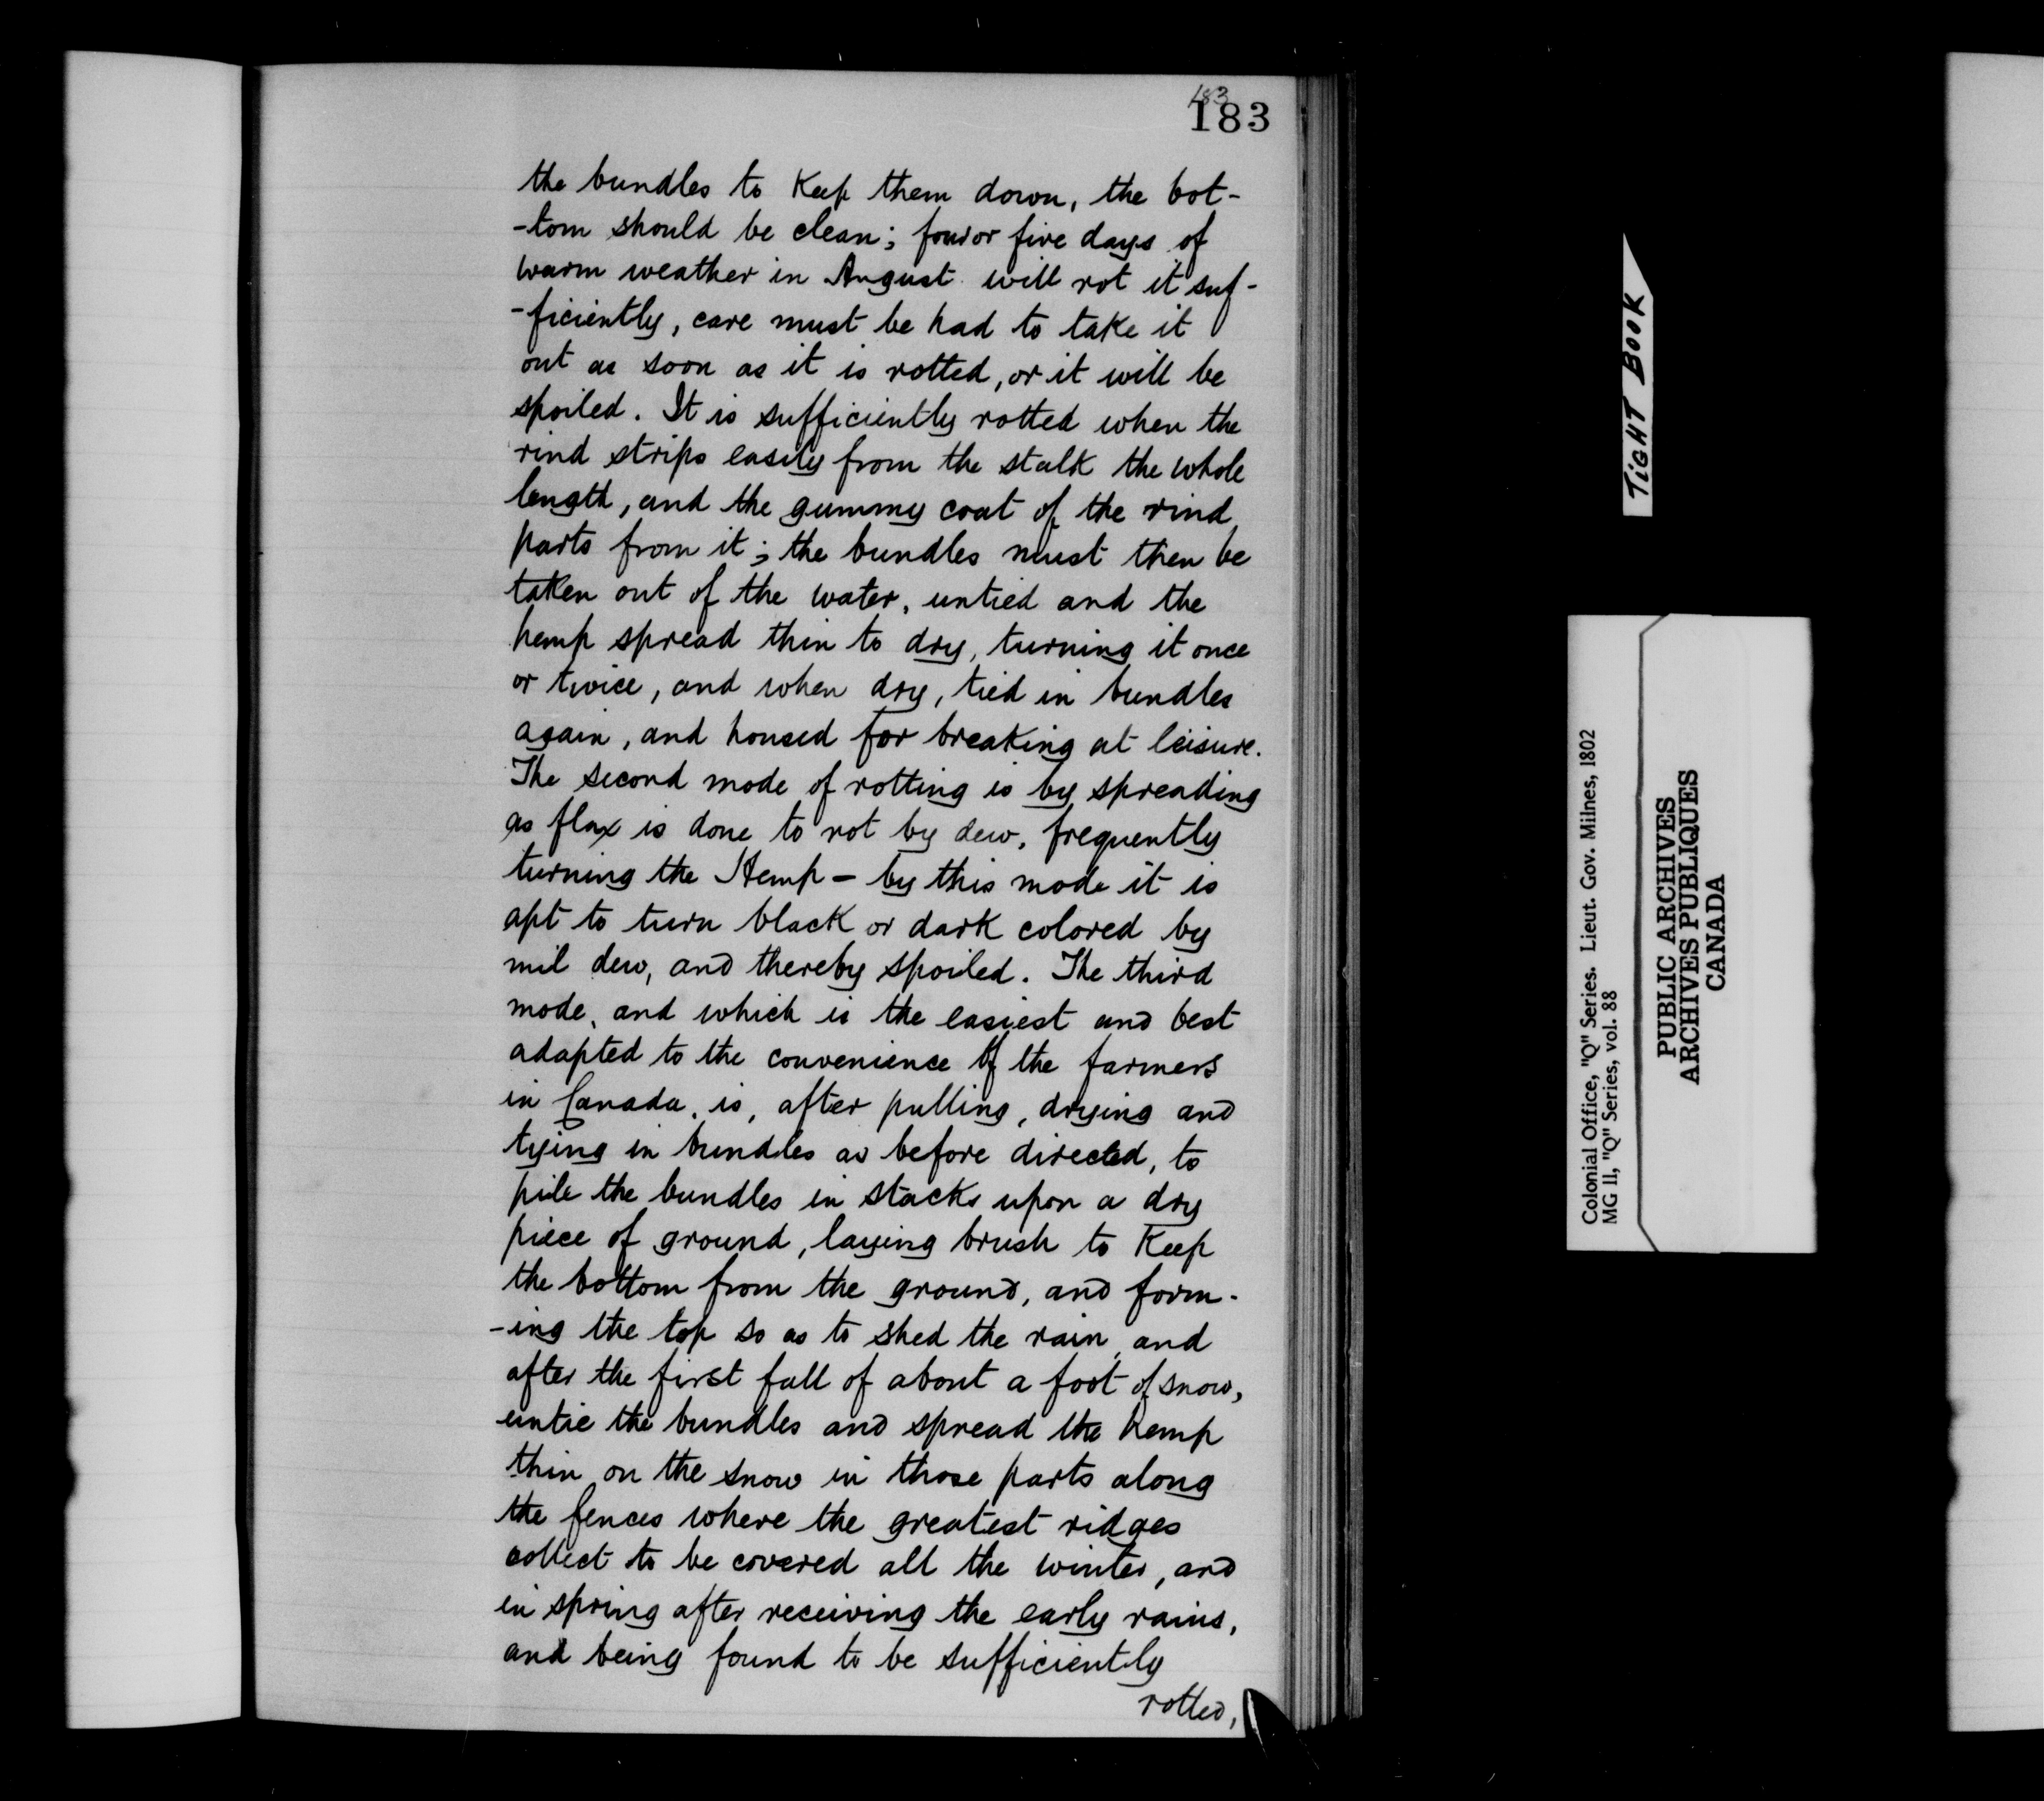 183
183
the bundles to Keep them down, the bot-
-tom should be clean; four or five days of
warm weather in August will rot it suf-
-ficiently, care must be had to take it
out as soon as it is rotted, or it will be
spoiled. It is sufficiently rotted when the
rind strips easily from the stalk the whole
length, and the gummy coat of the rind
parts from it; the bundles must then be
taken out of the water, untied and the
hemp spread thin to dry, turning it once
or twice, and when dry, tied in bundles
again, and housed for breaking at leisure.
The second mode of rotting is by spreading
as flax is done to rot by dew, frequently
turning the Hemp - by this mode it is
apt to turn black or dark colored by
mil dew, and thereby spoiled. The third
mode, and which is the easiest and best
adapted to the convenience of the farmers
in Canada, is, after pulling, drying and
tying in bundles as before directed, to
pile the bundles in stacks upon a dry
piece of ground, laying brush to Keep
the bottom from the ground, and form-
-ing the top so as to shed the rain, and
after the first fall of about a foot of snow,
untie the bundles and spread the hemp
thin on the snow in those parts along
the fences where the greatest ridges
collect to be covered all the winter, and
in spring after receiving the early rains,
and being found to be sufficiently
rotted,
TIGHT BOOK
Colonial Office, "Q" Series. Lieut. Gov. Milnes, 1802
MG 11, "Q" Series, vol. 88
PUBLIC ARCHIVES
ARCHIVES PUBLIQUES
CANADA